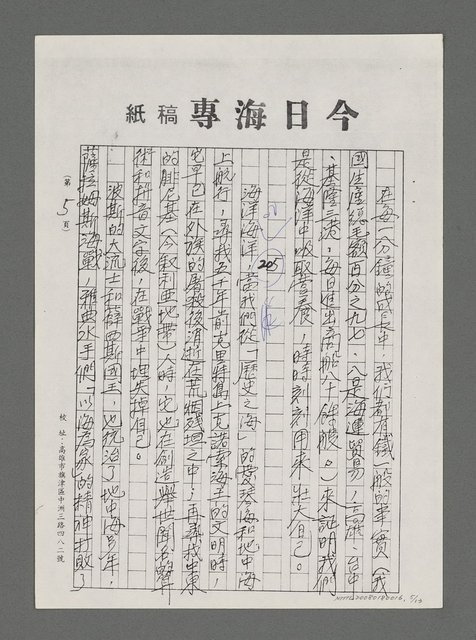 今日海專 稿紙
在每一分鐘的成長中，我們都有鐵一般的事實（我
國生產總毛額百分之九七、八是海運貿易，高雄、台中
、基隆三港，每日進出商船八十餘艘。）來証明我們
是從海洋中吸取營養，時時刻刻用來壯大自己。
245
海洋海洋，當我們從「歷史之海」的愛琴海和地中海
上航行，尋找五千年前克里特島上克諾索海王的文明時，
它早已在外族的屠殺後消逝在荒煙殘垣之中；再尋找中東
的腓尼基（今叙利亞地帶）人時，它也在創造舉世聞名解
術和拼音文字後，在戰爭中埋失掉自己。
波斯的大流士和薛西斯國王，也統治了地中海多年，
薩拉姆斯海戰，雅典水手們「以海為家」的精神打敗了
（第 5 頁）
校址：高雄市旗津區中洲三路四八二號
NMTL20080180016, 5/13